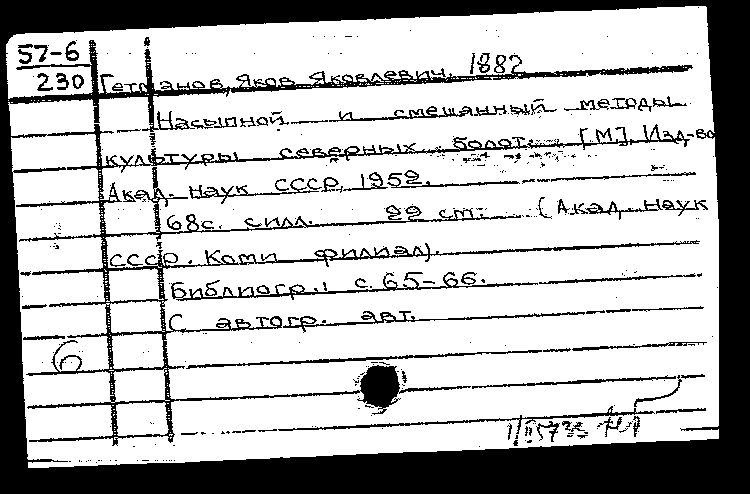 57-6
230 Гетманов, Яков Яковлевич, 1882
Насыпной и смешанный методы
культуры северных болот. [М], Изд-во
Акад. наук СССР, 1952.
68с. с илл. 22 см. (Акад. наук
СССР. Коми филиал).
Библиогр.: с. 65-66.
С автогр. авт.
6